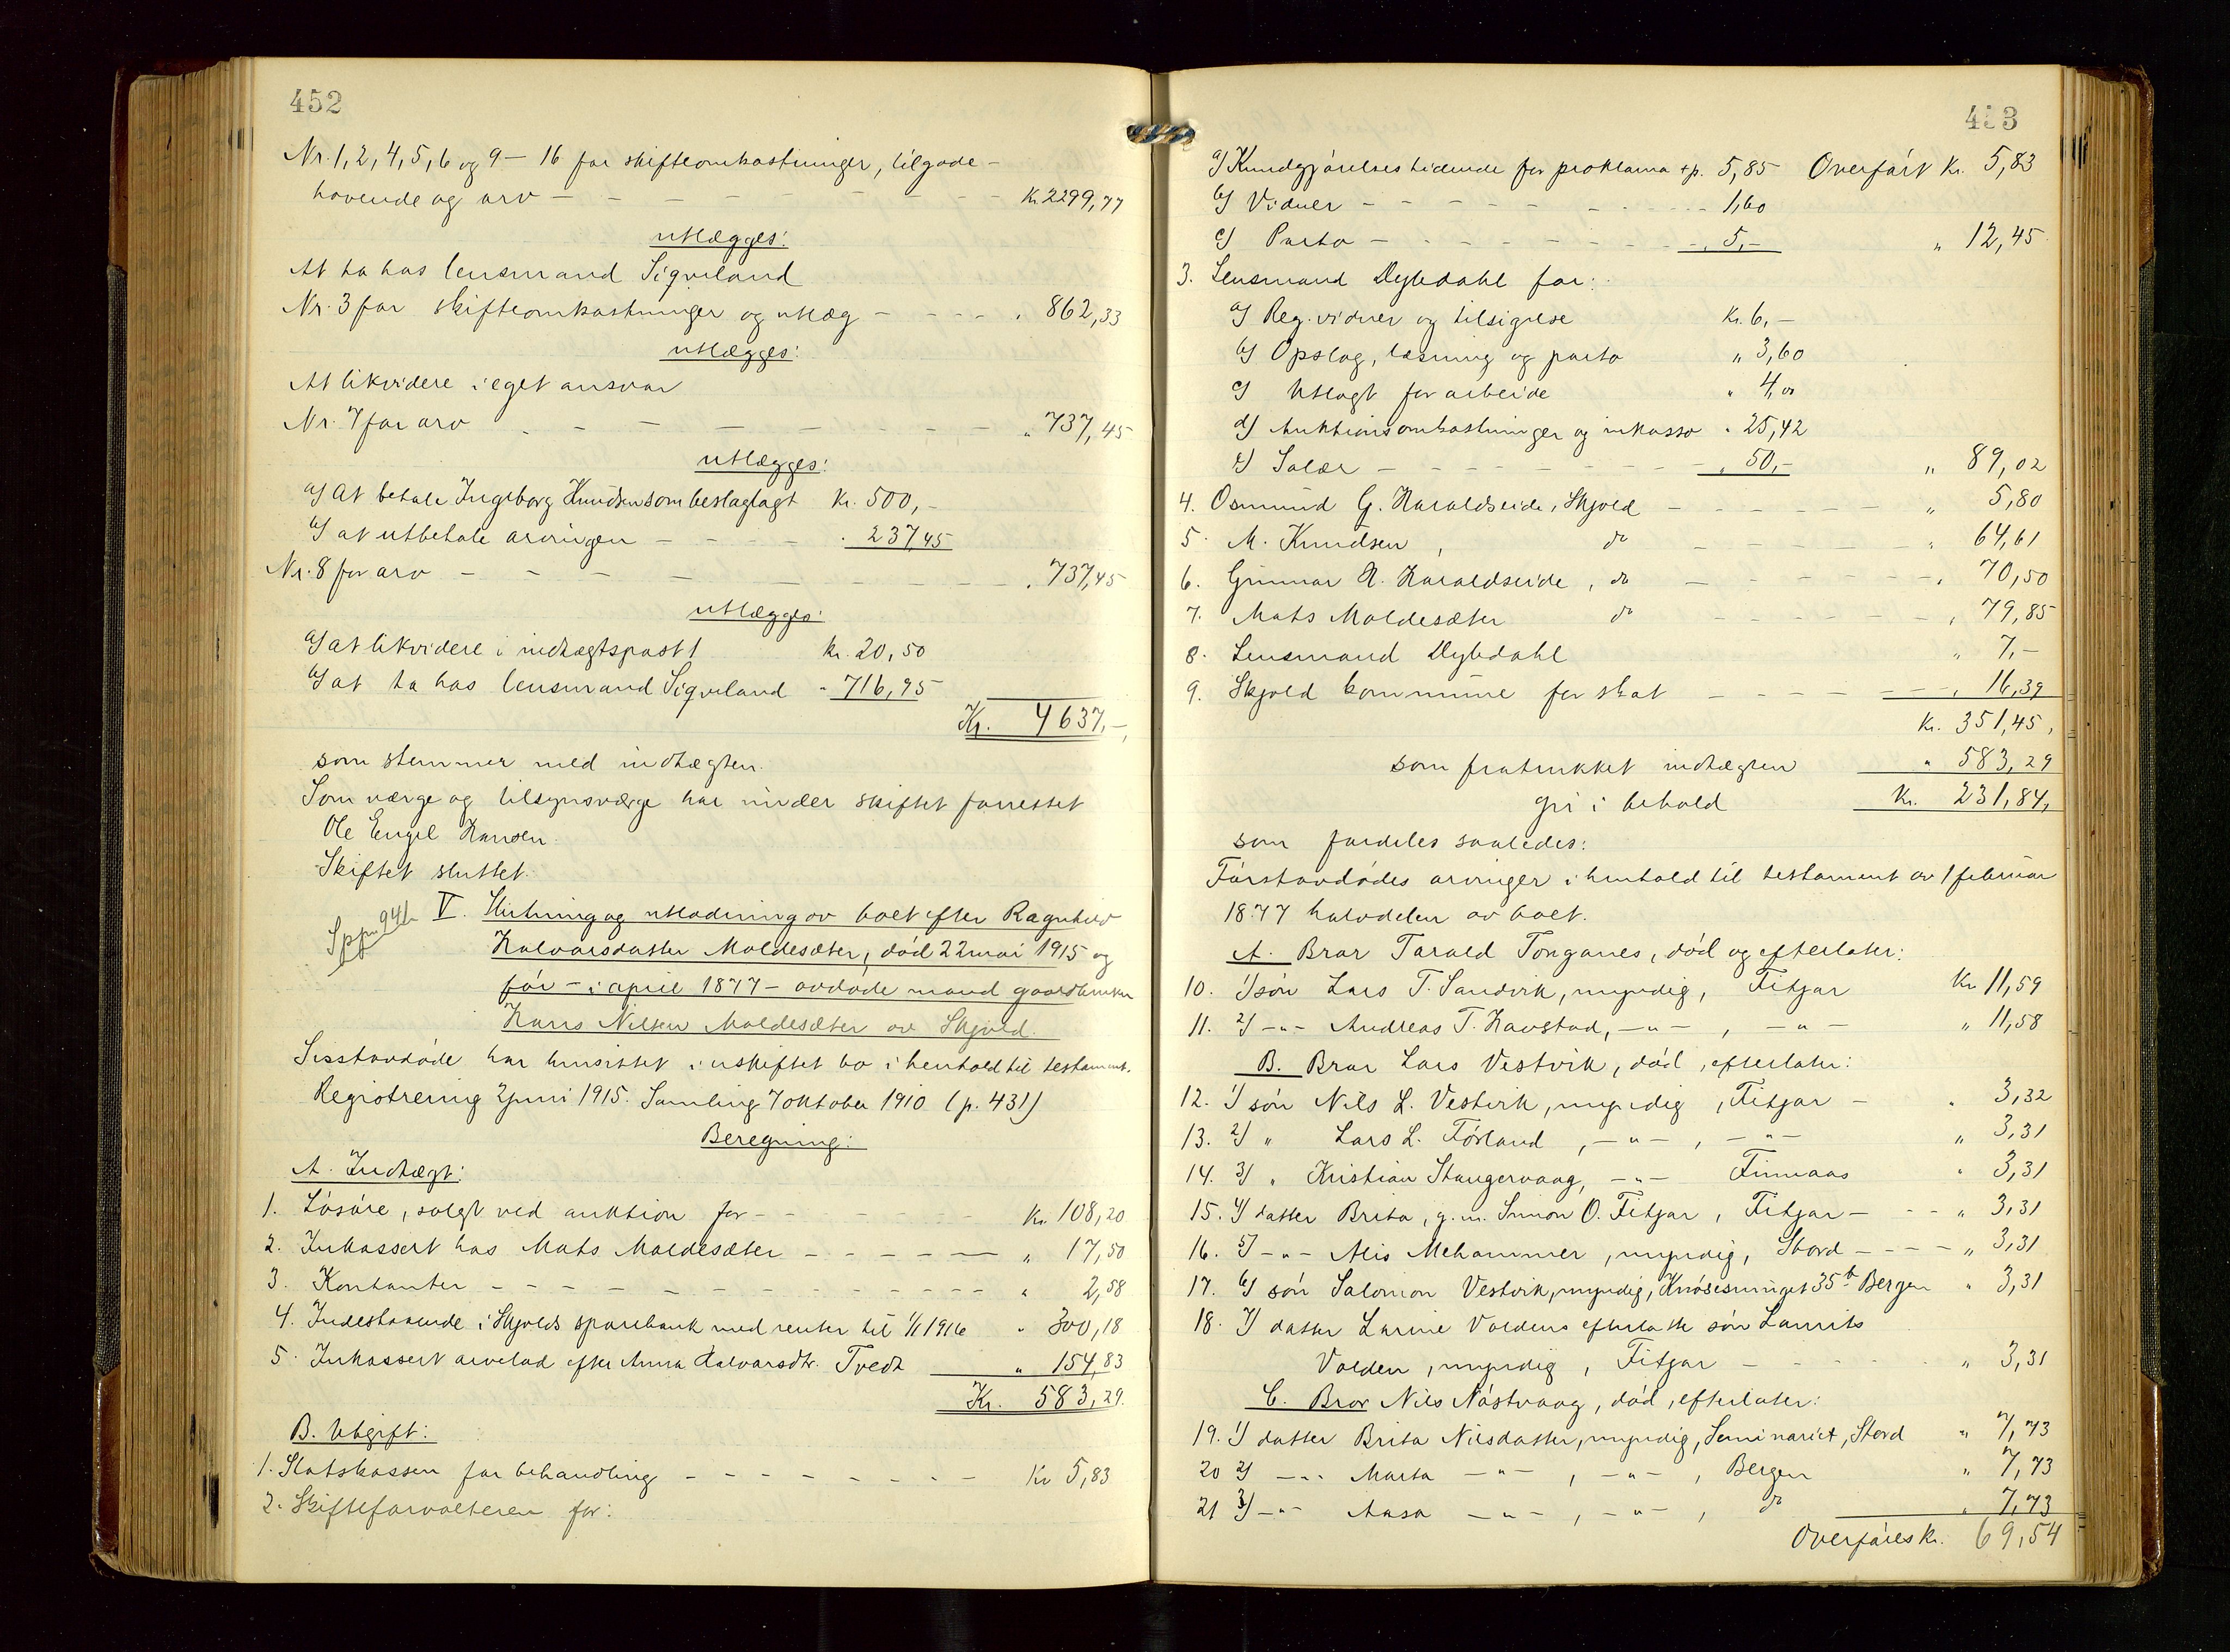 452
Nr. 1, 2, 4, 5, 6 og 9 – 16 for skifteomkostninger, tilgode-
havende og arv – – – – – – – – Kr. 2299,77
utlægges:
At ta hos lensmand Sigveland
Nr. 3 for skifteomkostninger og utlæg – – – – " 862,33
utlægges:
At likvidere i eget ansvar
Nr. 7 for arv – – – – – – – – " 737,45
utlægges:
a) at betale Ingeborg Knudsen som beslaglagt Kr. 500,-
b) at utbetale arvingen – – – – " 237,45
Nr. 8 for arv – – – – – – – – " 737,45
utlægges:
a) at likvidere i indtægtspost 1 Kr. 20,50
b) at ta hos lensmand Sigveland " 716,95
Kr. 4637,-
som stemmer med indtægten.
Som værge og tilsynsværge har under skiftet forrettet
Ole Engel Hansen.
Skiftet sluttet.
V. Slutning og utlodning av boet efter Ragnhild
Halvorsdatter Moldesæter, død 22 mai 1915 og
før – i april 1877 – avdøde mand gaardbruker
Hans Nilsen Moldesæter av Skjold.
Sisstavdøde har hensittet i uskiftet bo i henhold til testament.
Registrering 2 juni 1915. Samling 7 oktober 1910 (p. 431)
Beregning:
A. Indtægt:
1. Løsøre, solgt ved auktion for – – – – – – Kr. 108,20
2. Inkassert hos Mats Moldesæter – – – – – " 17,50
3. Kontanter – – – – – – – – – – " 2,58
4. Indestaaende i Skjolds sparebank med renter til 1/1 1916 " 300,18
5. Inkassert arvelod efter Anna Halvorsdtr. Tvedt " 154,83
Kr. 583,29.
B. Utgift:
1. Statskassen for behandling – – – – – – – – Kr 5,83
2. Skifteforvalteren for:
453
a) Kundgjørelsestidende for proklama + p. 5,85 Overført Kr. 5,83
b) Vidner – – – – – – – – 1,60
c) Porto – – – – – – – – " 5,- " 12,45
3. Lensmand Dybdahl for:
a) Reg. vidner og tilsigelse Kr. 6,-
b) Opslag, læsning og porto " 3,60
c) Utlagt for arbeide " 4,00
d) Auktionsomkostninger og inkasso " 25,42
e) Salær – – – – – – – – " 50,- " 89,02
4. Osmund G. Haraldseide, Skjold – – – – – – " 5,80
5. M. Knudsen, do – – – – – – " 64,61
6. Gunnar H. Haraldseide, do – – – – – – " 70,50
7. Mats Moldesæter do – – – – – – " 79,85
8. Lensmand Dybdahl " 7,-
9. Skjold kommune for skat – – – – – – " 16,39
Kr. 351,45,
som fratrukket indtægten " 583,29
gir i behold Kr. 231,84,
som fordeles saaledes:
Førstavdødes arvinger i henhold til testament av 1 februar
1877 halvdelen av boet.
A. Bror Tarald Tonganes, død og efterlater:
10. 1) søn Lars T. Sandvik, myndig, Fitjar Kr 11,59
11. 2) –"– Andreas T. Havstad, –"–, –"– " 11,58
B. Bror Lars Vestvik, død, efterlater:
12. 1) søn Nils L. Vestvik, myndig, Fitjar – " 3,32
13. 2) " Lars L. Førland, –"–, –"– " 3,31
14. 3) " Kristian Stangervaag, –"– Finnaas " 3,31
15. 4) datter Brita, g. m. Simon O. Fitjar, Fitjar – – – " 3,31
16. 5) –"– Alis Mehammer, myndig, Stord – – – – " 3,31
17. 6) søn Salomon Vestvik, myndig, Knøsesmuget 35b Bergen " 3,31
18. 7) datter Larine Voldens efterlatte søn Laurits
Volden, myndig, Fitjar – – – – – " 3,31
C. Bror Nils Nåstvaag, død, efterlater:
19. 1) datter Brita Nilsdatter, myndig, Seminariet, Stord " 7,73
20 2) –"– Marta –"–, –"–, Bergen " 7,73
21 3) –"– Aasa –"–, –"–, do " 7,73
Overføres Kr. 69,54